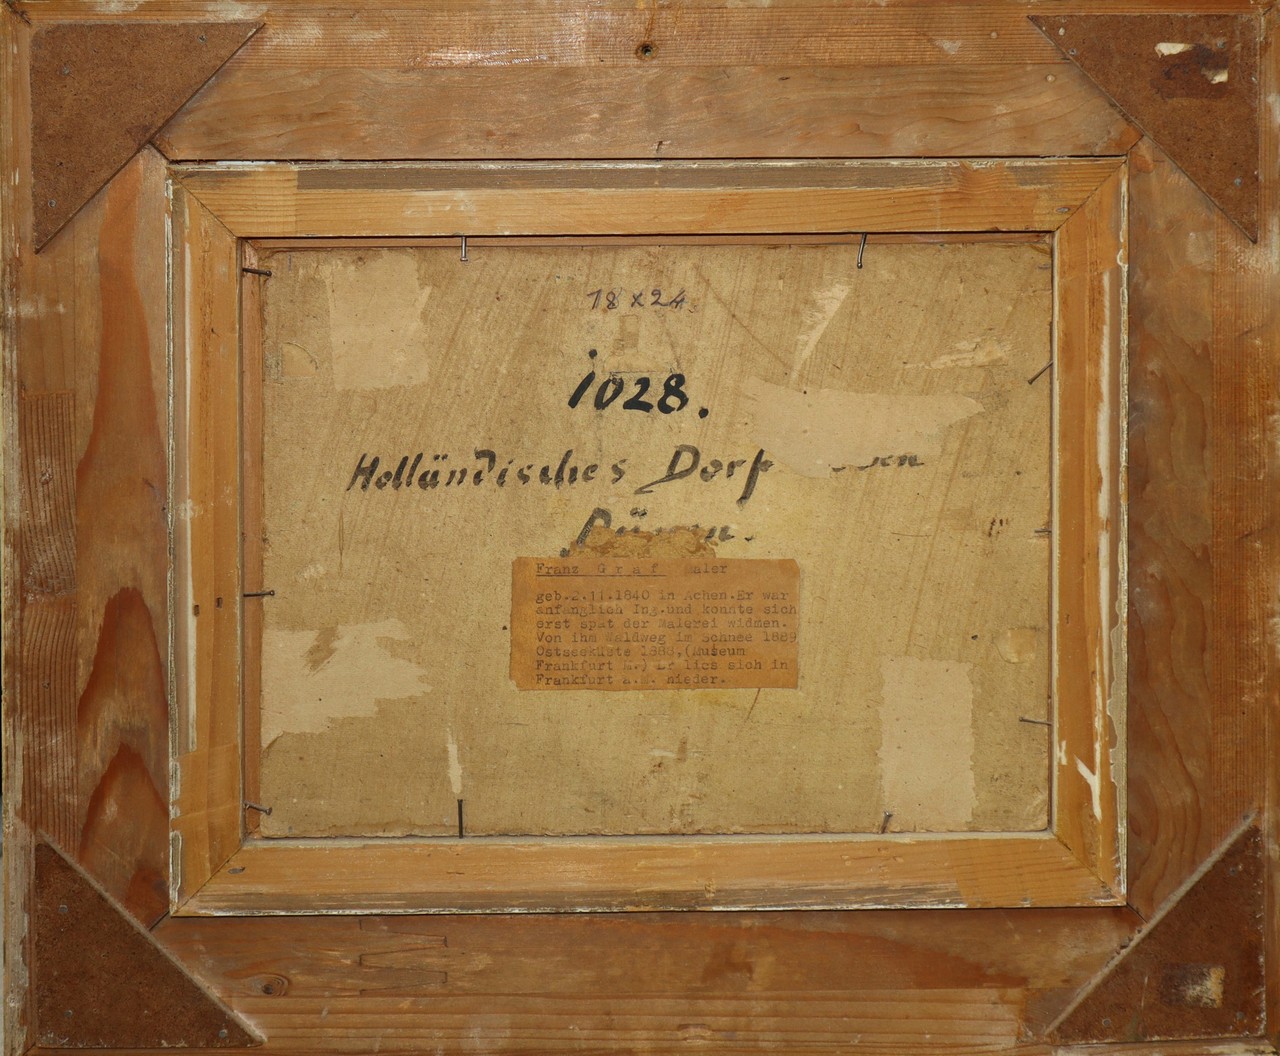 18 x 24.
1028.
Holländisches Dorf
Franz Graf Maler
geb.2.11.1840 in Achen.Er war
anfänglich Ing.und konnte sich
erst spät der Malerei widmen.
Von ihm Waldweg im Schnee 1889
Ostseeküste 1888,(Museum
Frankfurt M.) Er lies sich in
Frankfurt a.M. nieder.